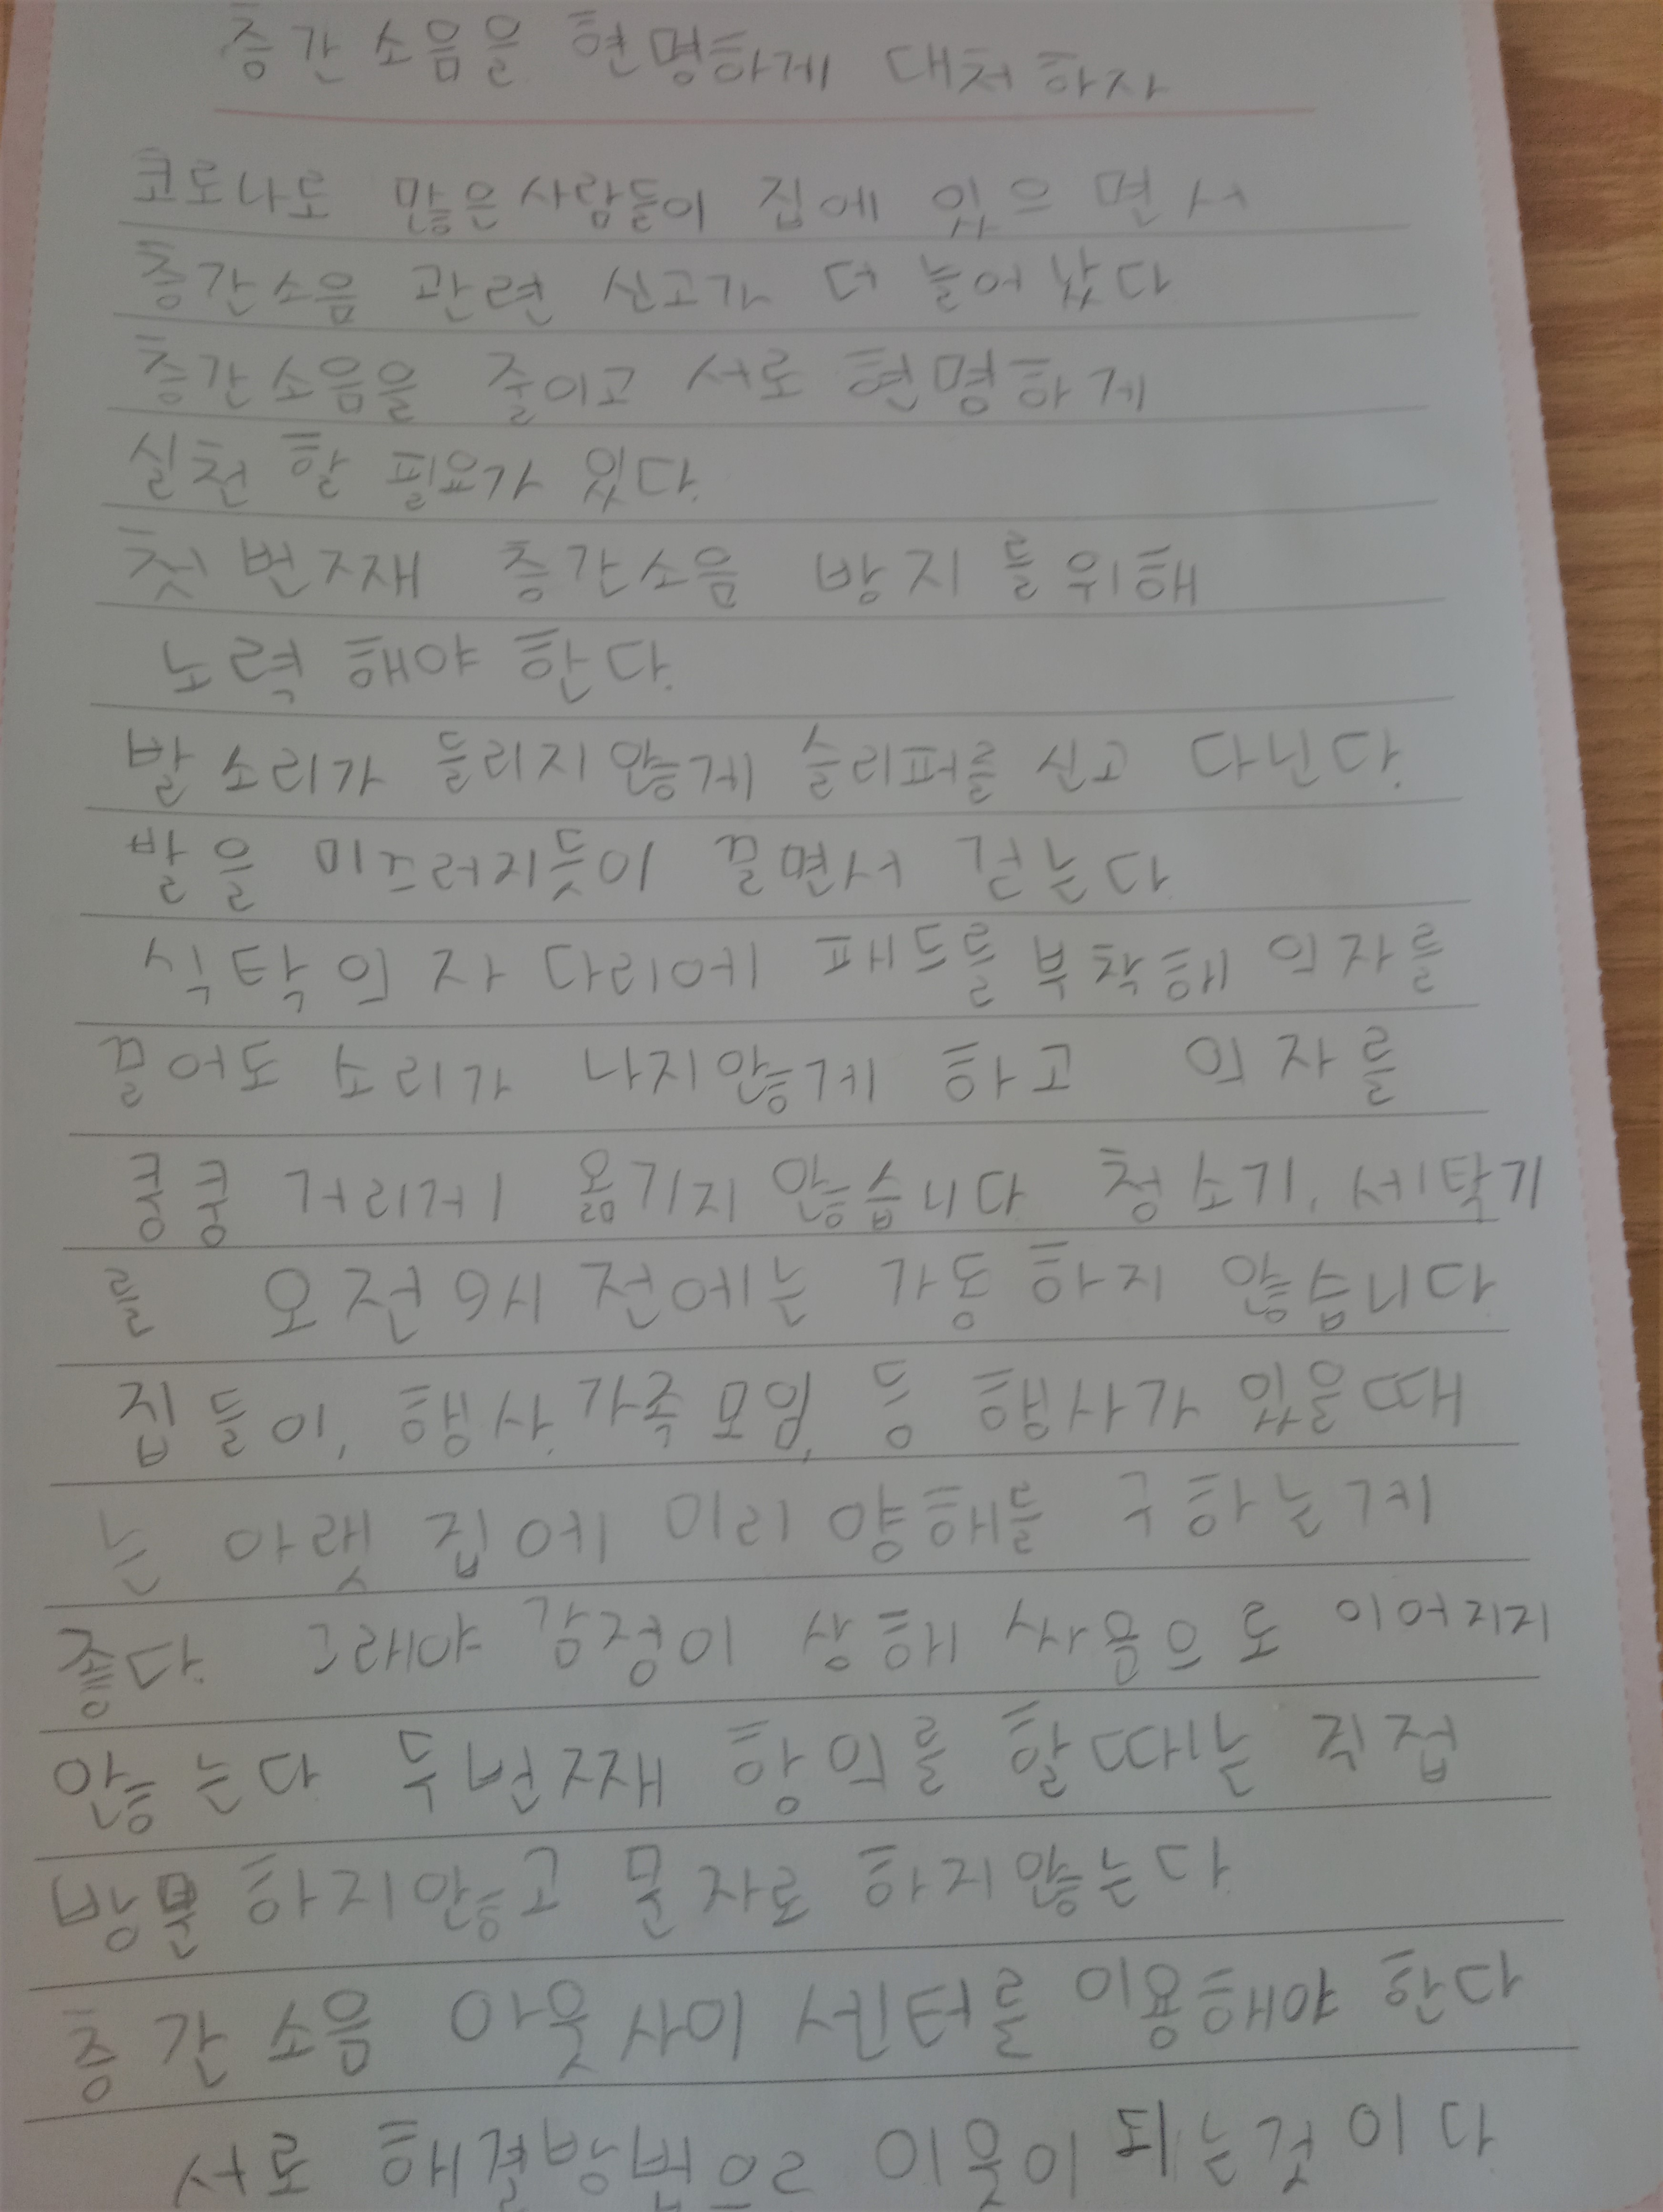 층간 소음을 현명하게 대처하자
코로나로 많은사람들이 집에 있으면서
층간소음 관련 신고가 더 늘어났다
층간소음을 줄이고 서로 현명하게
실천 할 필요가 있다.
첫번재째 층간소음 방지를위해
노력 해야 한다.
발소리가 들리지않게 슬리퍼를 신고 다닌다.
발을 미끄러지듯이 끌면서 걷는다
식탁의자 다리에 패드를 부착해 의자를
끌어도 소리가 나지않게 하고 의자를
쿵쿵 거리게 옮기지 않습니다 청소기, 세탁기
를 오전9시 전에는 가동하지 않습니다
집들이, 행사, 가족모임, 등 행사가 있을때
는 아랫집에 미리 양해를 구하는게
좋다. 그래야 감정이 상해 싸움으로 이어지지
않는다 두번째 항의를 할때는 직접
방문 하지않고 문자로 하지않는다
층간소음 이웃사이 센터를 이용해야 한다
서로 해결방법으로 이웃이 되는것이다